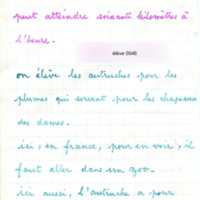 peut atteindre soixante kilomètres à
l'heure.
élève 0046
on élève les autruches pour les
plumes qui servent pour les chapeaux
des dames.
ici, en france, pour en voir, il
faut aller dans un zoo.
ici aussi, l'autruche a pour